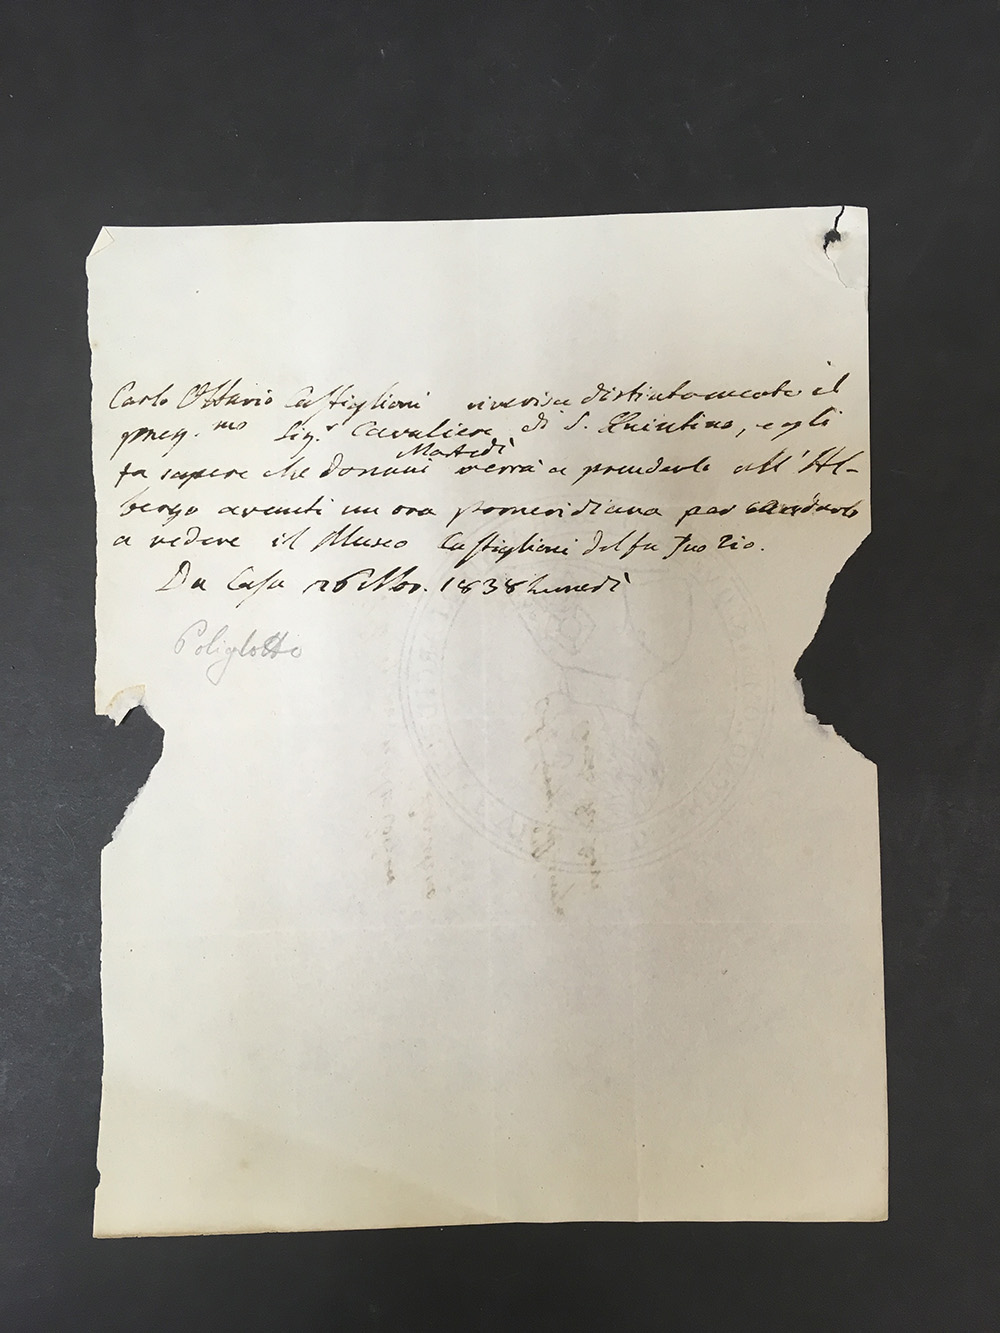 Carlo Ottavio Castiglioni riverisce distintamente il
preg.mo Sig.r Cavaliere di S. Quintino, e gli
fa sapere che domani Martedì verrà a prenderlo all'Al-
bergo avanti un ora pomeridiana per condurlo
a vedere il Museo Castiglioni del fu suo zio.
Da Casa 26 Nov. 1838 Lunedì
Poliglotto